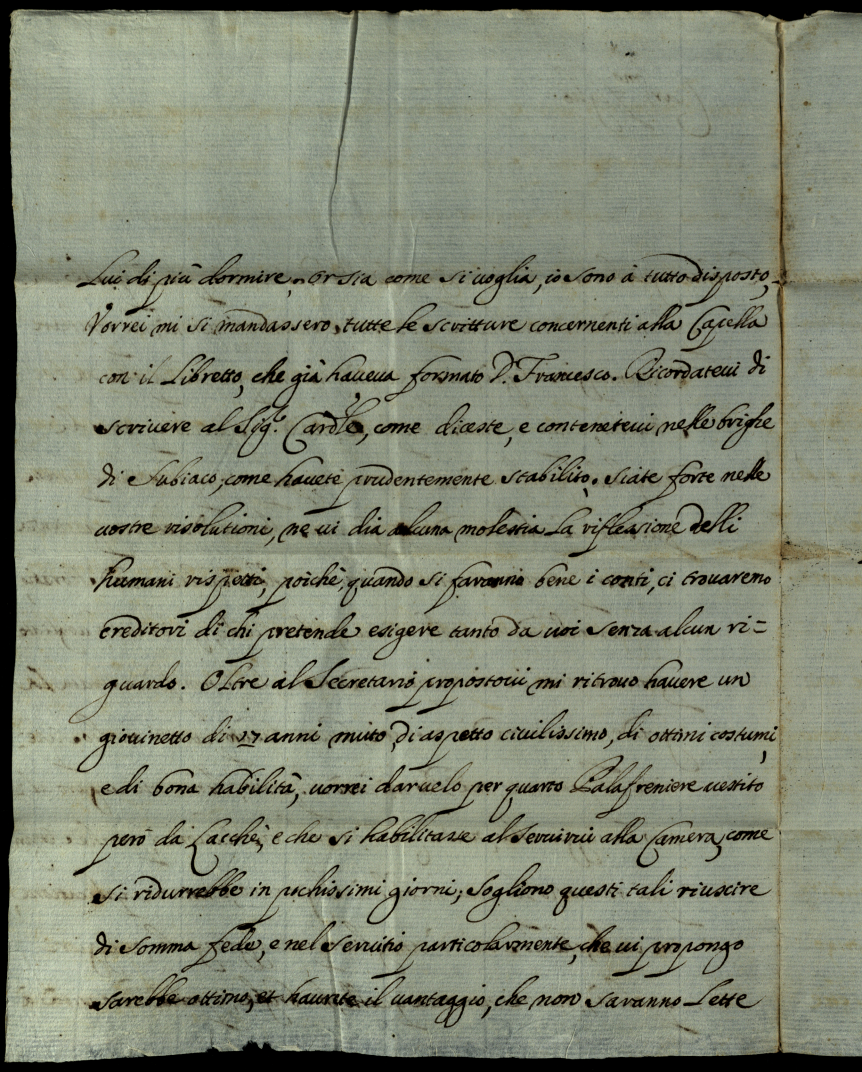 Lui di più dormire, or sia come si voglia, io sono à tutto disposto,
Vorrei mi si mandassero, tutte le scritture concernenti alla Capella
con il Libretto, che già haveva formato D. Francesco. Ricordatevi di
scrivere al Sig.r Card.le, come diceste, e contenetevi nelle brighe
di Subiaco, come havete prudentemente stabilito. Siate forte nelle
vostre risolutioni, ne vi dia alcuna molestia la riflessione delli
humani rispetti, poiche, quando si faranno bene i conti, ci trovaremo
creditori di chi pretende esigere tanto da voi senza alcun ri=
guardo. Oltre al Secretario propostovi mi ritrovo havere un
giovinetto di 17 anni muto, di aspetto civilissimo, di ottimi costumi,
e di bona habilità, vorrei darvelo per quarto Palafreniere vestito
però da Lacchè, e che si habilitasse al servirvi alla Camera, come
si ridurrebbe in pochissimi giorni; Sogliono questi tali riuscire
di somma fede, e nel servitio particolarmente, che vi propongo
sarebbe ottimo, et havrete il vantaggio, che non saranno Lette